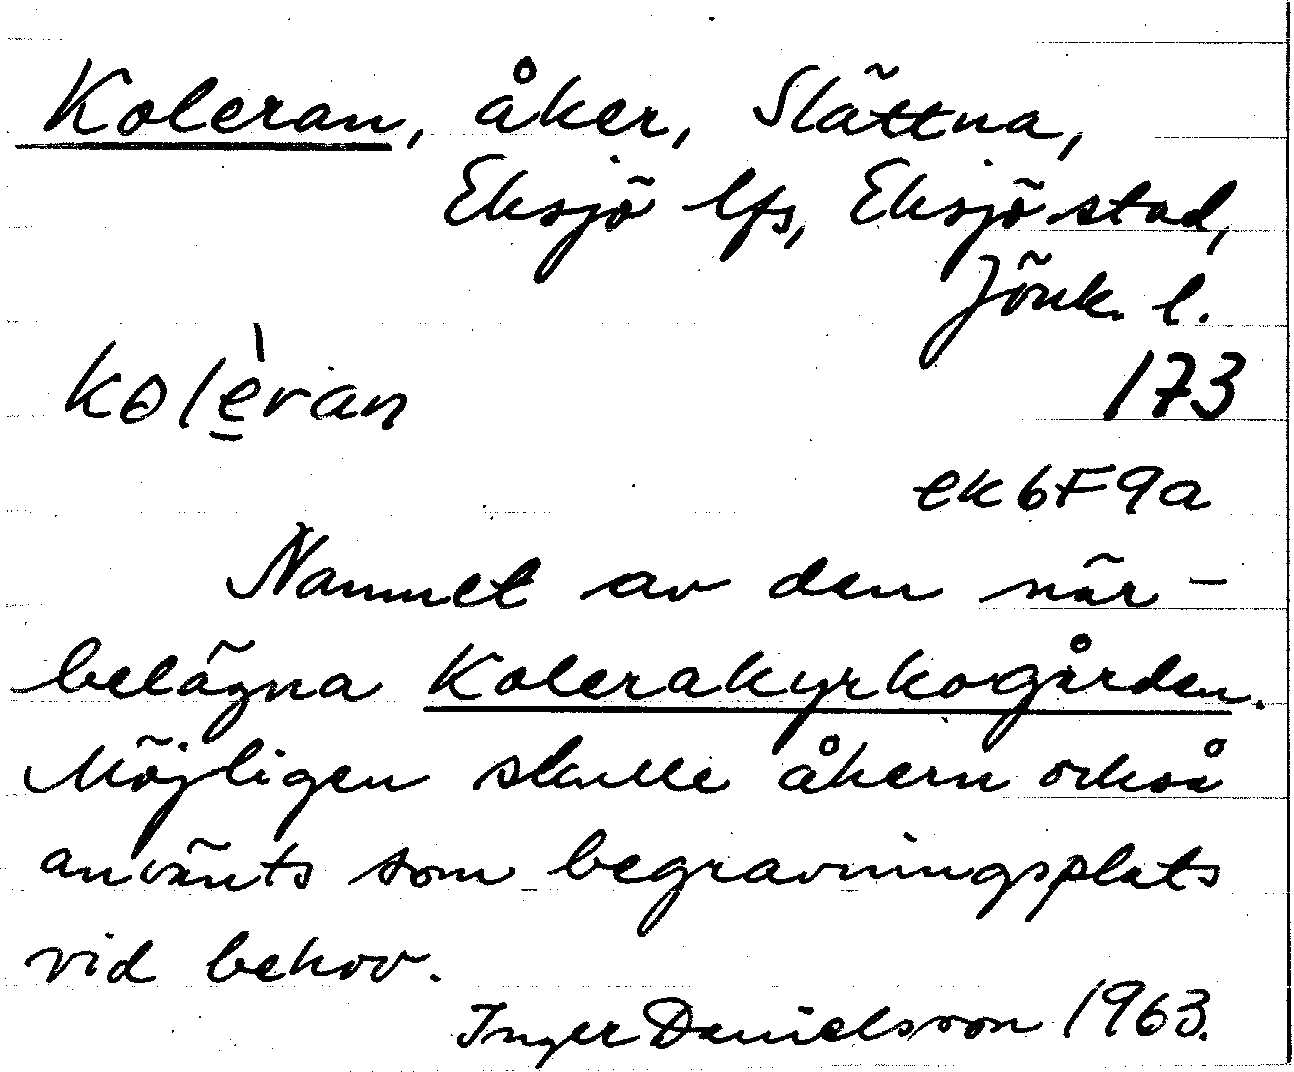 Koleran, åker, Slättna,
Eksjö lfs, Eksjö stad,
Jönk. l.
kolèran
173
ek6F9a
Namnet av den när-
belägna Kolerakyrkogården.
Möjligen skulle åkern också
använts som begravningsplats
vid behov.
Inger Danielsson 1963.